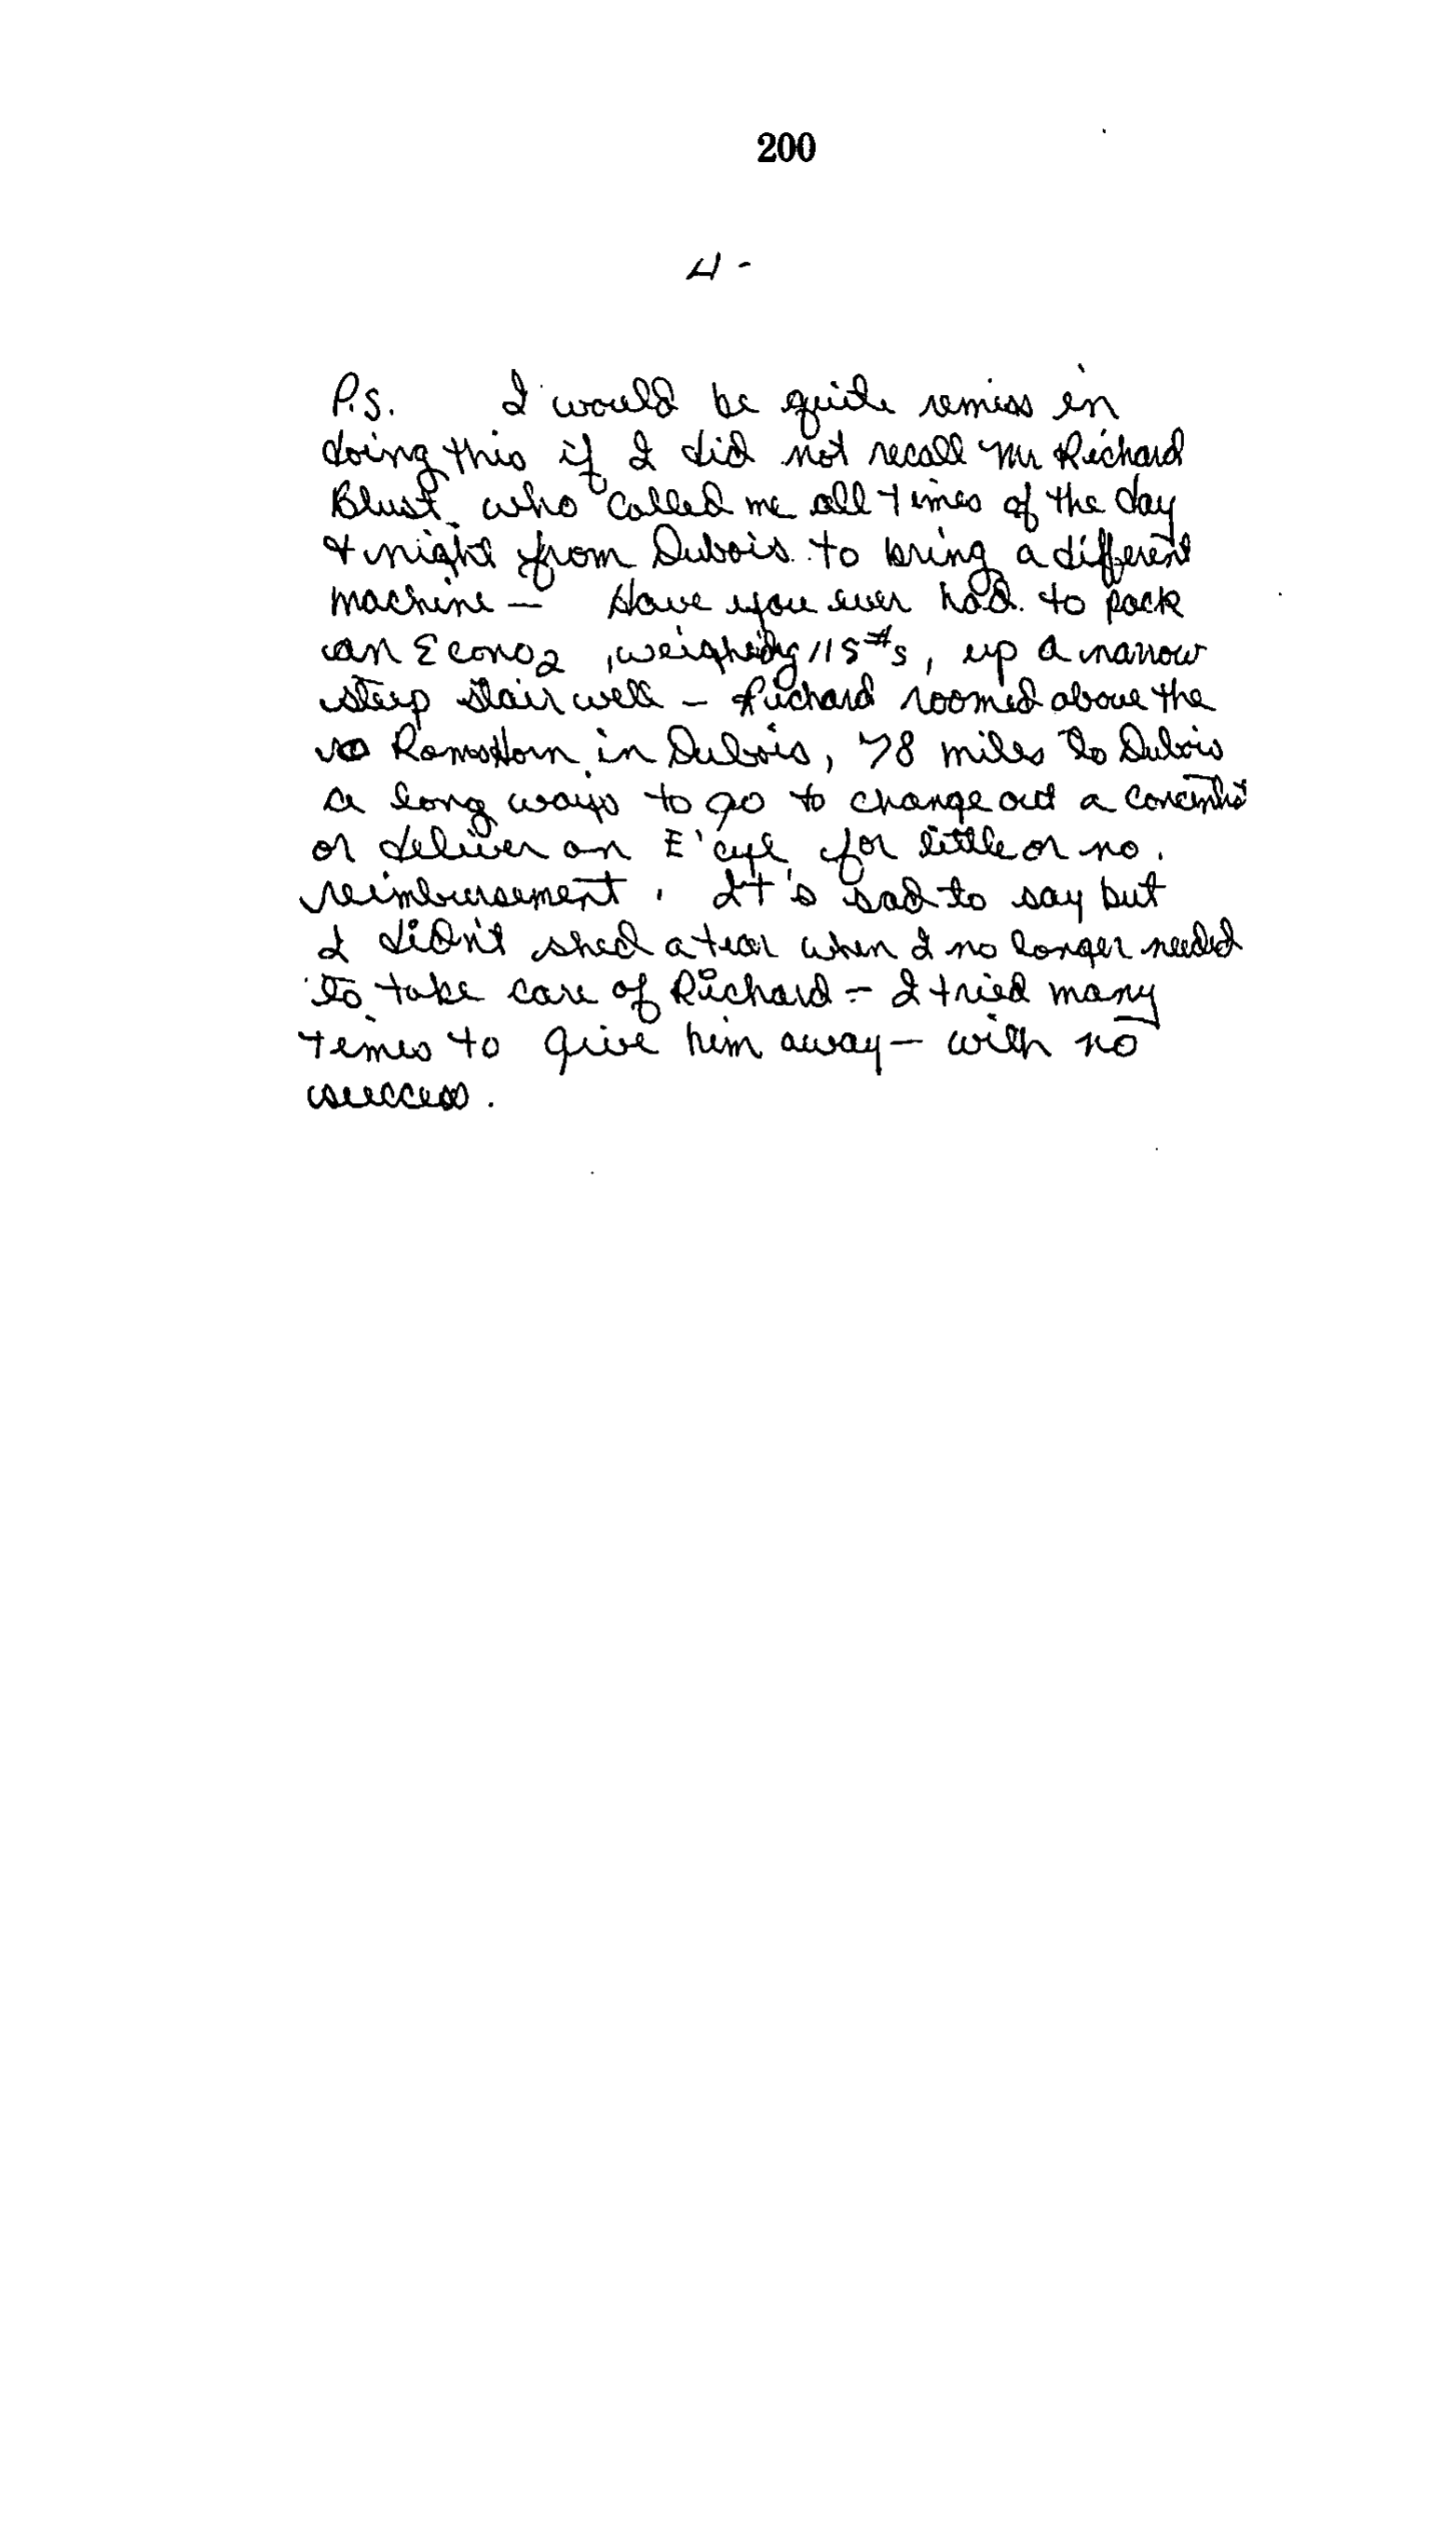 200
4 -
P.S. I would be quite remiss in
doing this if I did not recall Mr Richard
Blust who called me all times of the day
& night from Dubois to bring a different
machine — Have you ever had to pack
an Econo2, weighing 115#s, up a narrow
steep stairwell - Richard roomed above the
RamsHorn in Dubois, 78 miles to Dubois
a long ways to go to change out a
or deliver an E'cyl for little or no
reimbursement. It's sad to say but
I didn't shed a tear when I no longer needed
to take care of Richard - I tried many
times to give him away — with no
success.